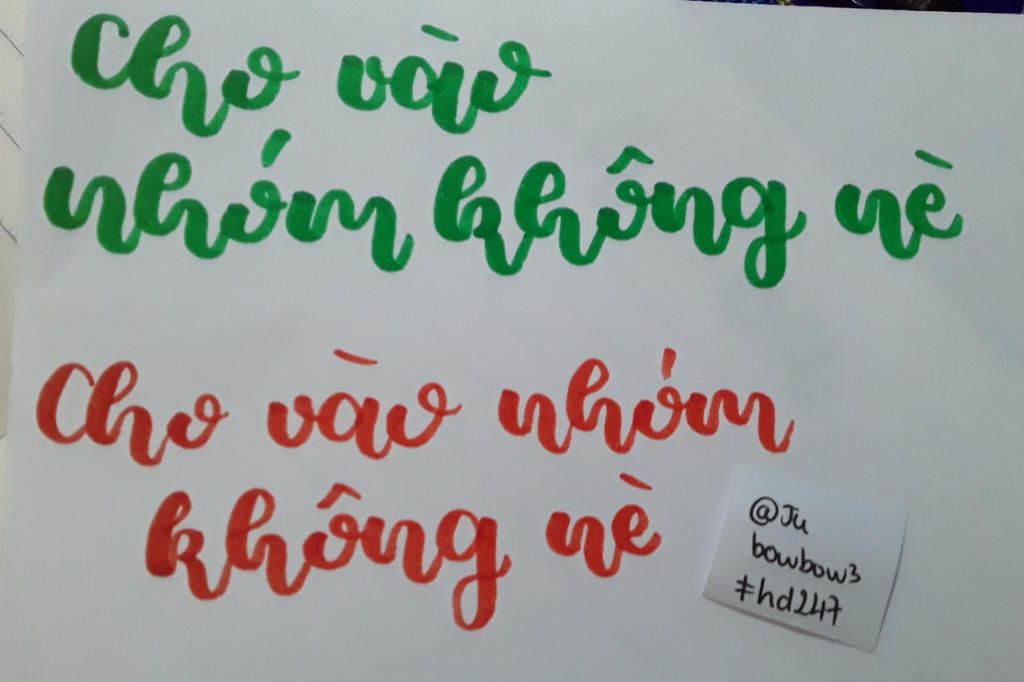 Cho vào
nhóm không nè
Cho vào nhóm
không nè
@Ju
bowbow3
#hd247